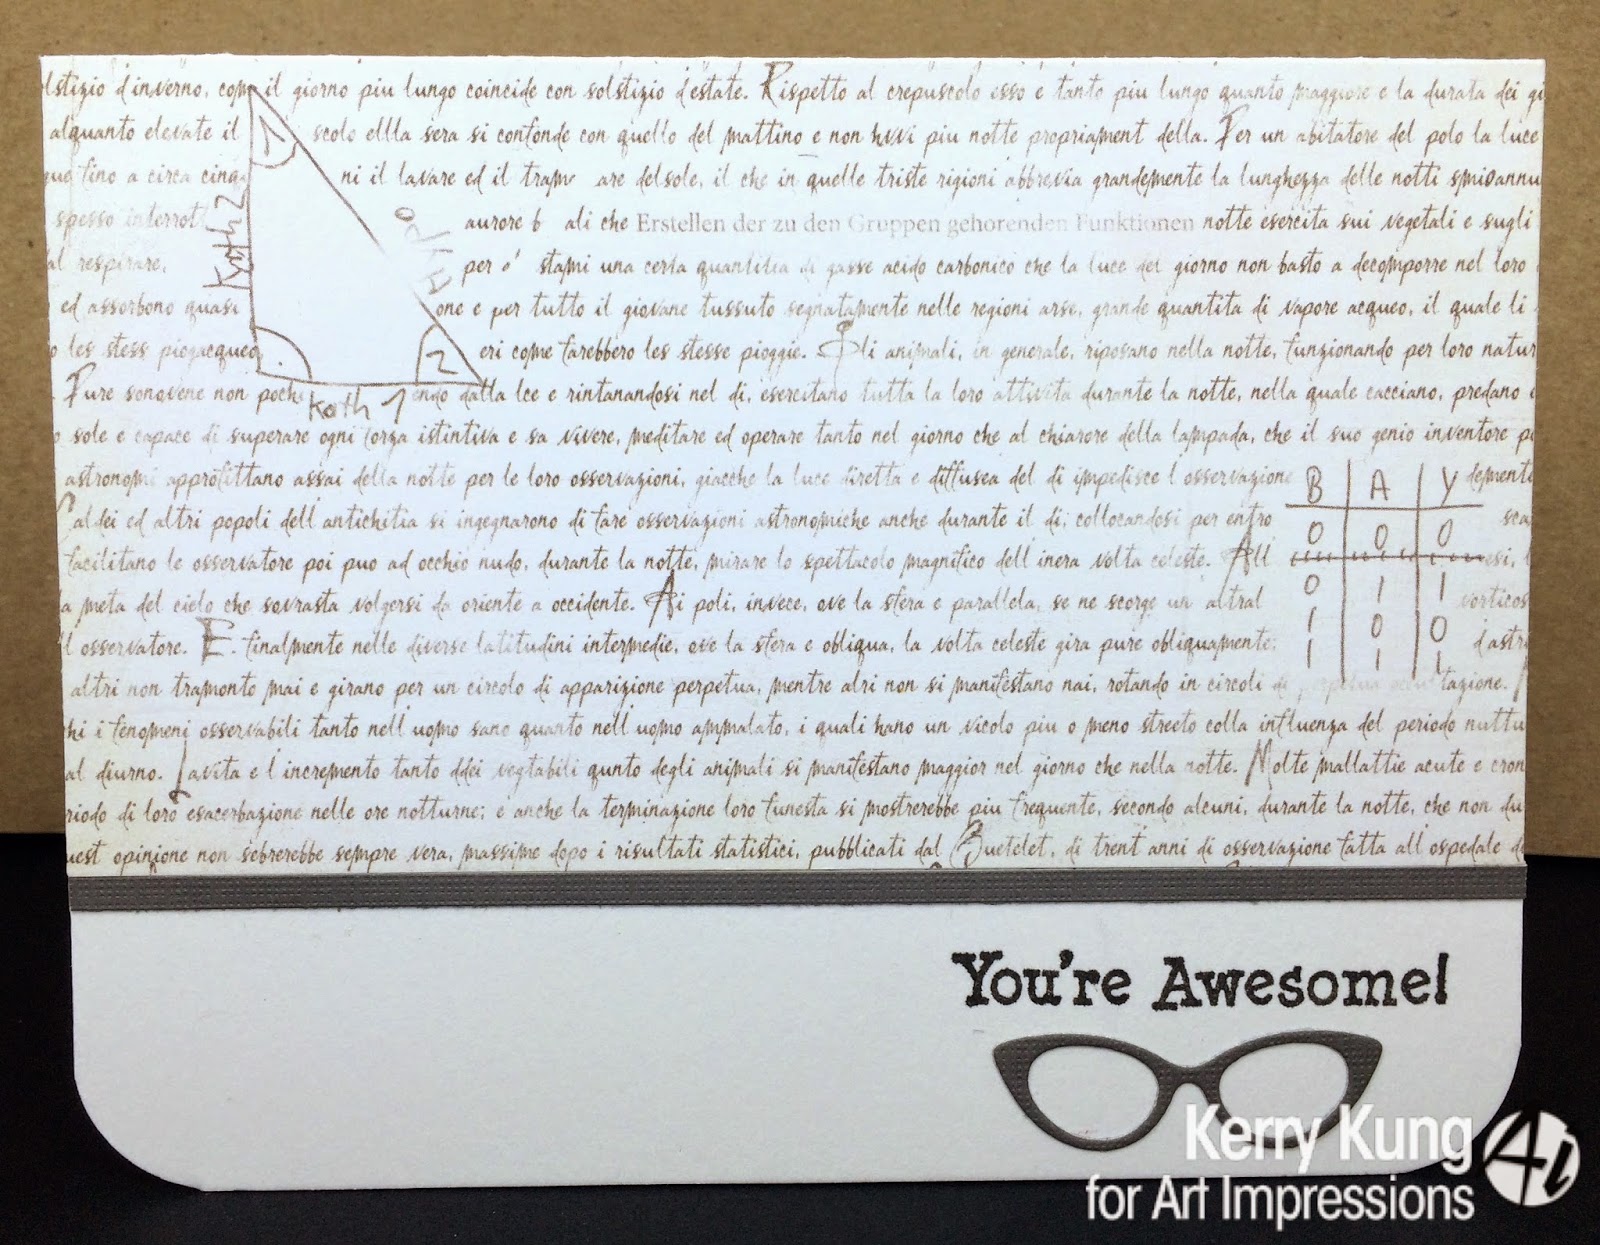 lstizio d'inverno, come il giorno piu lungo coincide con solstizio d'estate. Rispetto al crepuscolo esso e tanto piu lungo quanto maggiore e la durata dei gi
alquanto elevate il scolo ellla sera si confonde con quello del mattino e non hvvi piu notte propriament della. Per un abitatore del polo la luce
que fino a circa cinq ni il lavare ed il tram are delsole, il che in quelle triste rigioni abbrevia grandemente la lunghezza delle notti smisannu
spesso interrott aurore b ali che Erstellen der zu den Gruppen gehorenden Funktionen notte esercita sui vegetali e sugli
al respirare, per o' stami una certa quantitia di gasse acido carbonico che la luce del giorno non basto a decomporre nel loro
ed assorbono quasi one e per tutto il giovane tussuto segnatamente nelle regioni arse, grande quantita di vapore acqueo, il quale li
o les stess piogacqueo, eri come farebbero les stesse pioggie. Gli animali, in generale, riposano nella notte, funzionando per loro natur
Pure sonovene non pochi endo dalla lce e rintanandosi nel di, esercitano tutta la loro attivita durante la notte, nella quale cacciano, predano
1
Kath 2
Hypo
2
Kath 1
o sole e capace di superare ogni forza istintiva e sa vivere, meditare ed operare tanto nel giorno che al chiarore della lampada, che il suo genio inventore p
astronomi approfittano assai della notte per le loro osservazioni, giacche la luce diretta e diffusea del di impedisce l osservazione demente
aldei ed altri popoli dell antichitia si ingegnarono di fare osservazioni astronomiche anche durante il di; collocandosi per entro sca
facilitano le osservatore poi puo ad occhio nudo, durante la notte, mirare lo spettacolo magnifico dell inera volta celeste. All esi,
a meta del cielo che sovrasta volgersi da oriente a occidente. Ai poli, invece, ove la sfera e parallela, se ne scorge un altral vorticos
l osservatore. E. finalmente nelle diverse latitudini intermedie, ove la sfera e obliqua, la volta celeste gira pure obliquamente; d'astr
B A Y
0 0 0
0 1 1
1 0 0
1 1 1
altri non tramonto mai e girano per un circolo di apparizione perpetua, mentre alri non si manifestano nai, rotando in circoli di perpetua tazione.
hi i fenomeni osservabili tanto nell uomo sano quanto nell uomo ammalato, i quali hano un vicolo piu o meno streeto colla influenza del periodo nuttu
al diurno. Lavita e l incremento tanto ddei vegtabili qunto degli animali si manifestano maggior nel giorno che nella notte. Molte mallattie acute e cron
riodo di loro esacerbazione nelle ore notturne; e anche la terminazione loro funesta si mostrerebbe piu frequente, secondo alcuni, durante la notte, che non du
uest opinione non sebrerebbe sempre vera, massime dopo i risultati statistici, pubblicati dal Quetelet, di trent anni di osservazione fatta all ospedale d
You're Awesome!
Kerry Kung
for Art Impressions
Ai